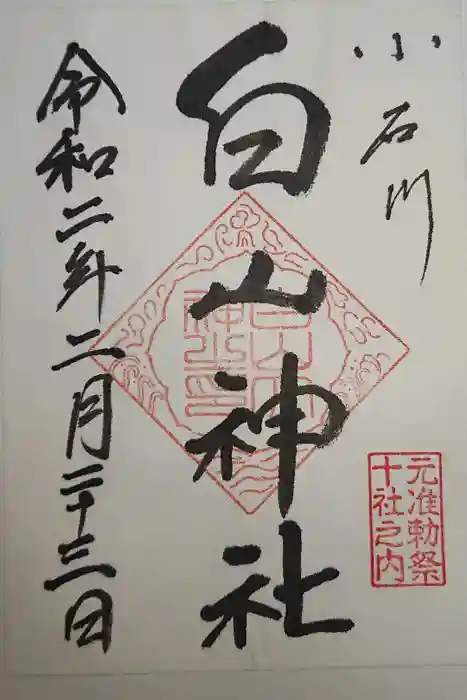 小石川
元准勅祭
十社之内
白山神社
白山神
社之印
令和二年二月二十三日